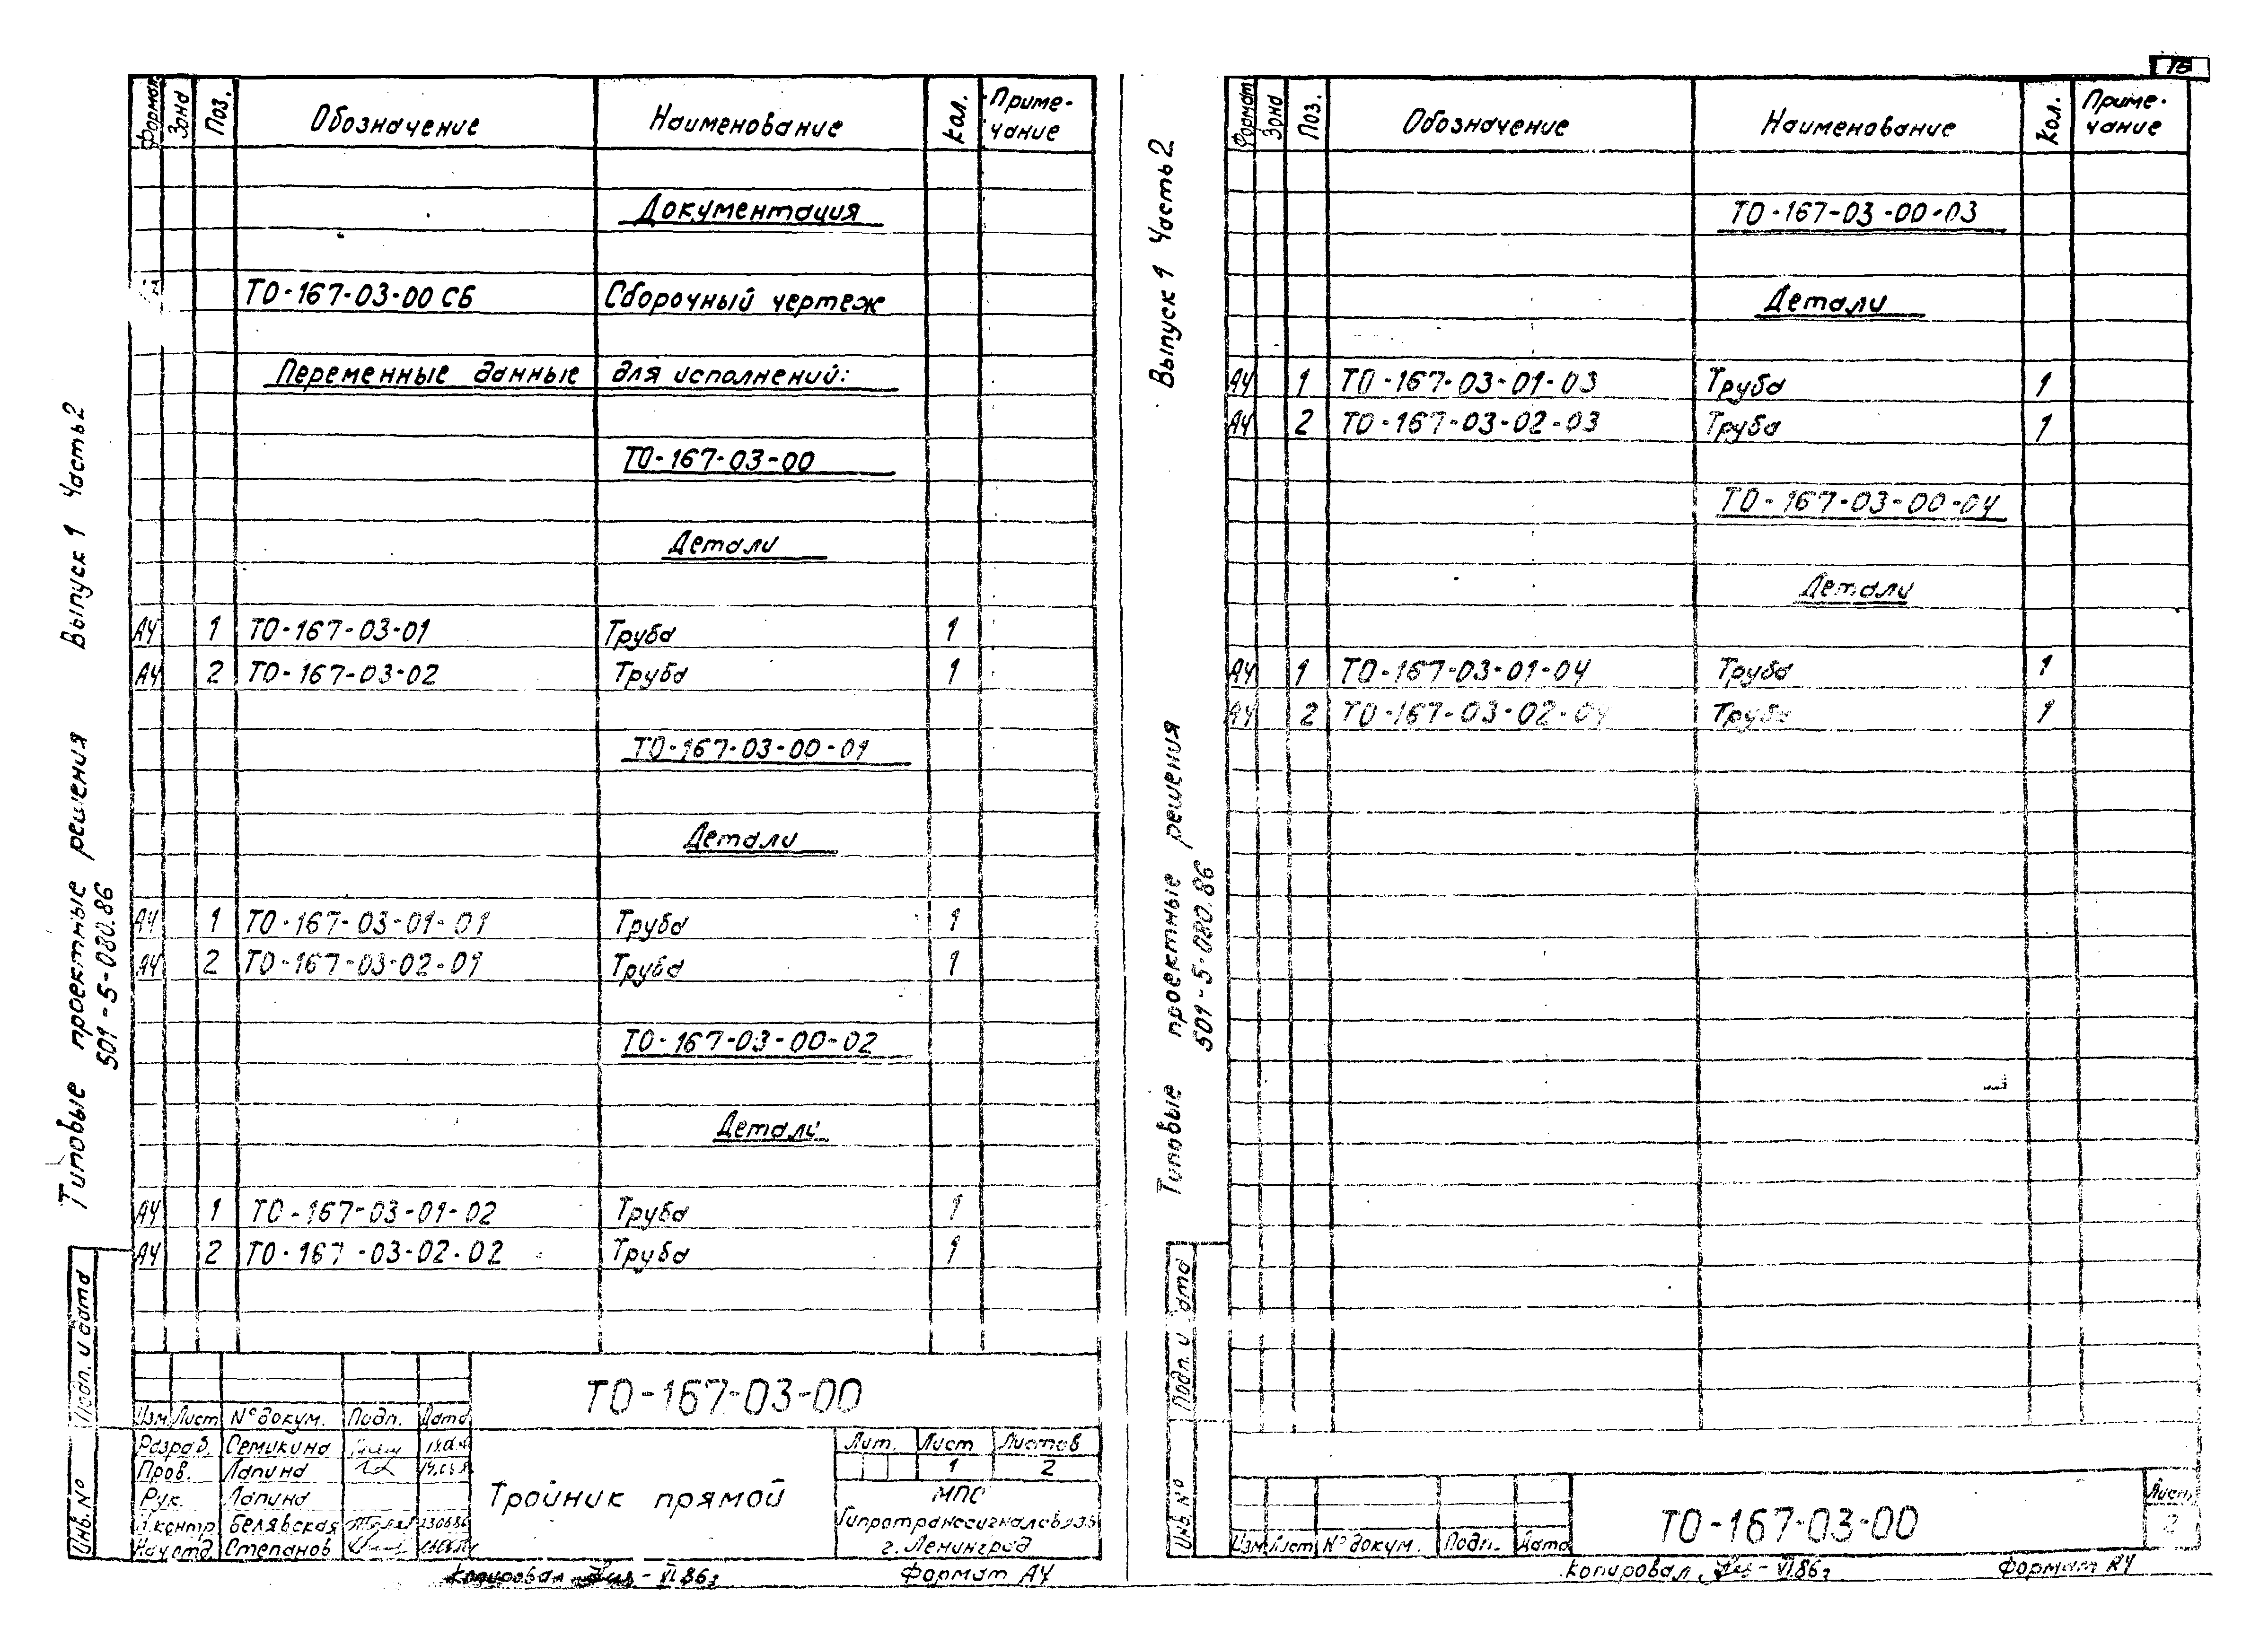 Формат Зона Поз. Обозначение Наименование Кол. Приме-
чание
Документация
ТО-167-03-00 СБ Сборочный чертеж
Переменные данные для исполнений:
ТО-167-03-00
Детали
А4 1 ТО-167-03-01 Труба 1
А4 2 ТО-167-03-02 Труба 1
ТО-167-03-00-01
Детали
А4 1 ТО-167-03-01-01 Труба 1
А4 2 ТО-167-03-02-01 Труба 1
ТО-167-03-00-02
Детали
А4 1 ТО-167-03-01-02 Труба 1
А4 2 ТО-167-03-02-02 Труба 1
Типовые проектные решения Выпуск 1 Часть 2
501-5-080.86
Подп. и дата
Инв. №
ТО-167-03-00
Изм Лист № докум. Подп. Дата
Разраб. Семикина
Пров. Лапина
Рук. Лапина
Н.контр Белявская
Нач отд. Степанов
Тройник прямой
Лит. Лист Листов
1 2
МПС
Гипротранссигналсвязь
г. Ленинград
Копировал - VI 86г Формат А4
15
Формат Зона Поз. Обозначение Наименование Кол. Приме-
чание
ТО-167-03-00-03
Детали
А4 1 ТО-167-03-01-03 Труба 1
А4 2 ТО-167-03-02-03 Труба 1
ТО-167-03-00-04
Детали
А4 1 ТО-167-03-01-04 Труба 1
А4 2 ТО-167-03-02-04 Труба 1
Типовые проектные решения Выпуск 1 Часть 2
501-5-080.86
Подп. и дата
Инв. №
Изм Лист № докум. Подп. Дата
ТО-167-03-00
Лист
2
Копировал - VI 86г Формат А4